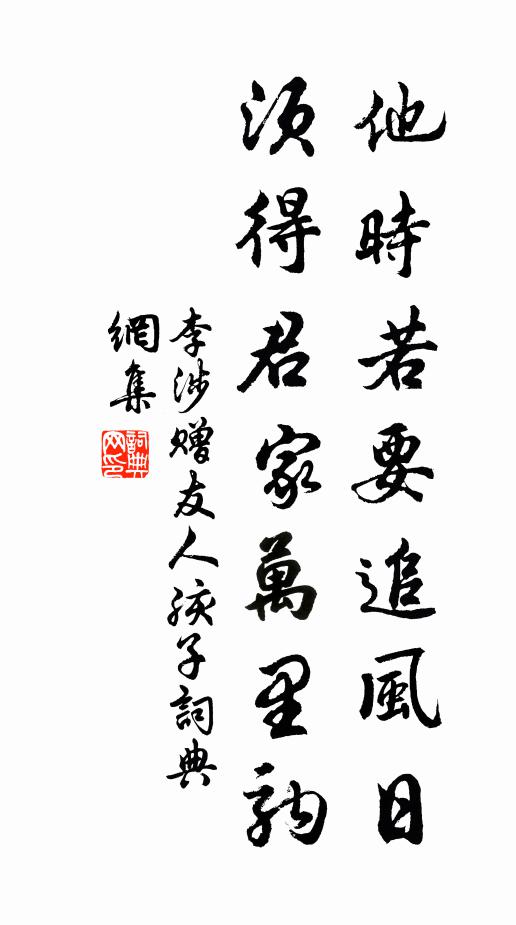 他時若要追風日
須得君家萬里駒
李涉贈友人孩子詞典
網集
詞典
网印